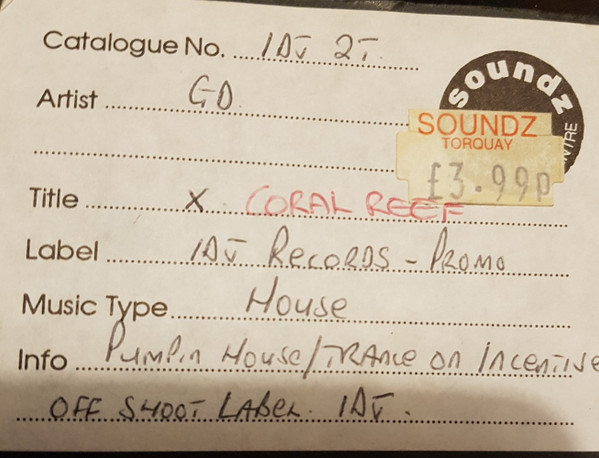 Catalogue No. IDJ 2T.
soundz
Artist GD.
SOUNDZ
TORQUAY
£3.99p
Title X CORAL REEF
Label IDJ RECORDS - PROMO
Music Type House
Info PUMPIN HOUSE/TRANCE ON INCENTIVE
OFF SHOOT LABEL. IDJ.